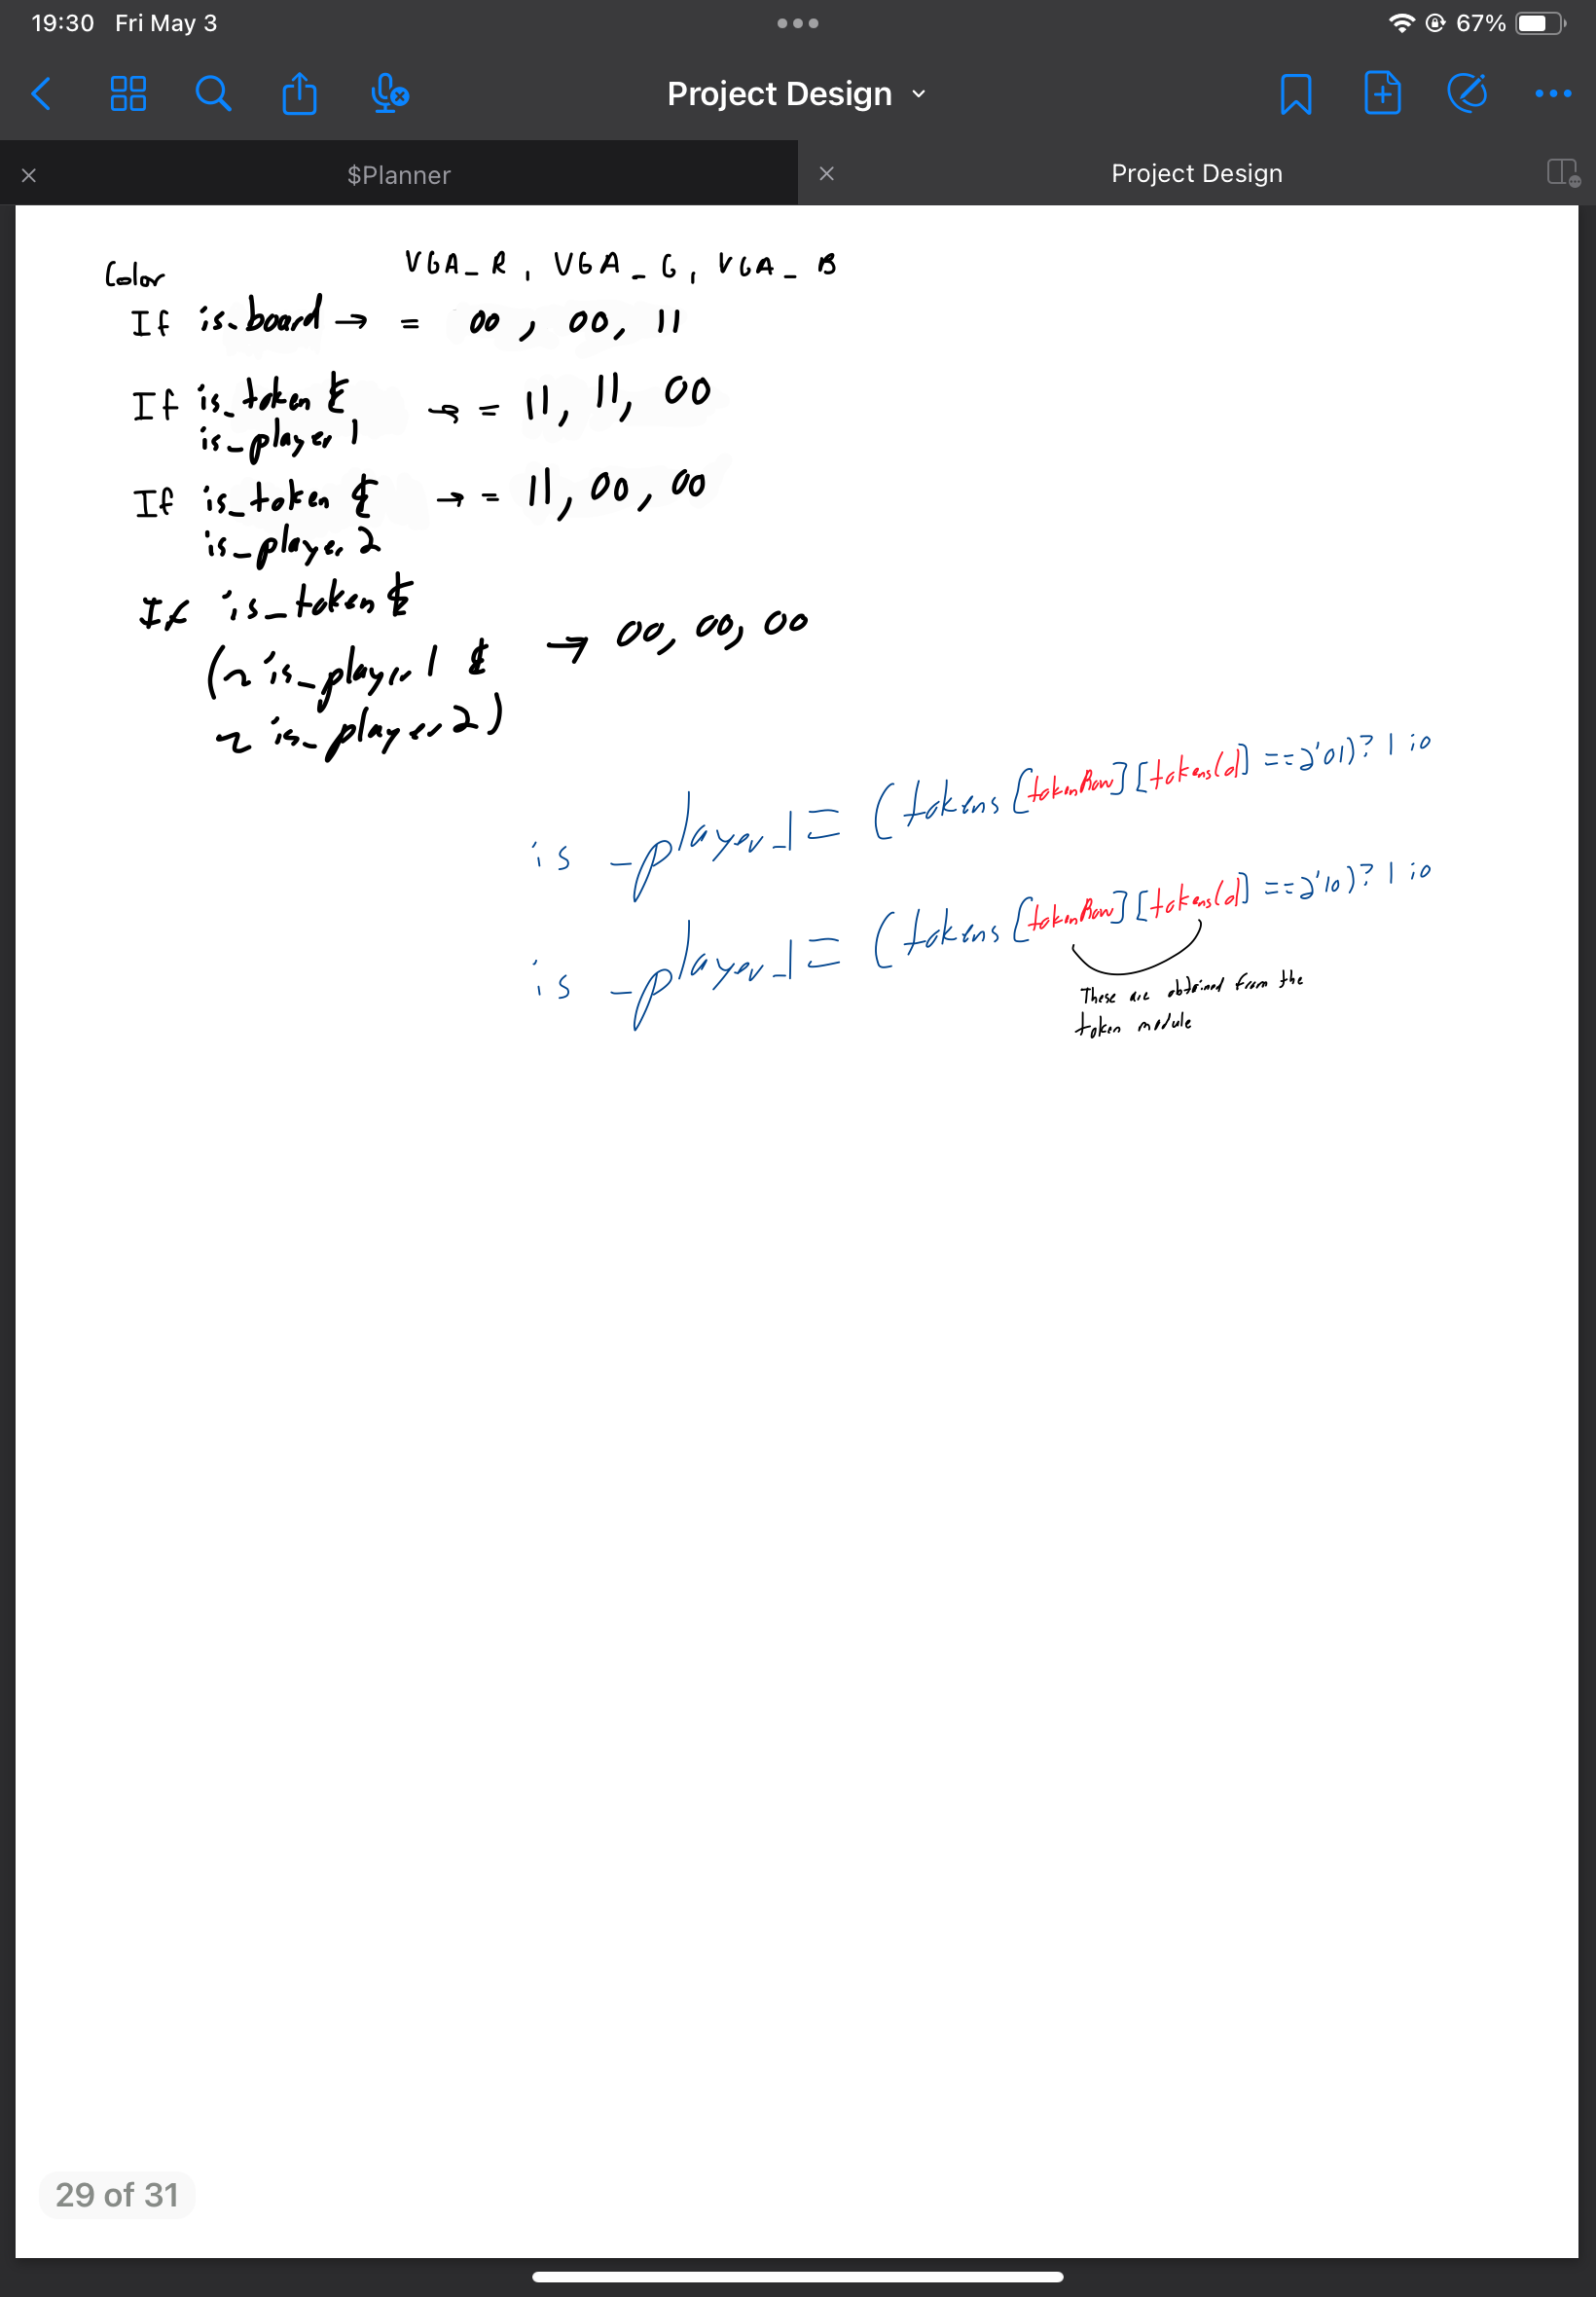 19:30 Fri May 3
67%
Project Design
$Planner
Project Design
Color VGA_R, VGA_G, VGA_B
If is_board → = 00, 00, 11
If is_token &
is_player 1 → = 11, 11, 00
If is_token & → = 11, 00, 00
is_player 2
If is_token &
(~ is_player 1 & → 00, 00, 00
~ is_player 2)
is_player_1 = (tokens [tokenRow] [tokensCol] == 2'01)? 1 : 0
is_player_1 = (tokens [tokenRow] [tokensCol] == 2'10)? 1 : 0
These are obtained from the
token module
29 of 31